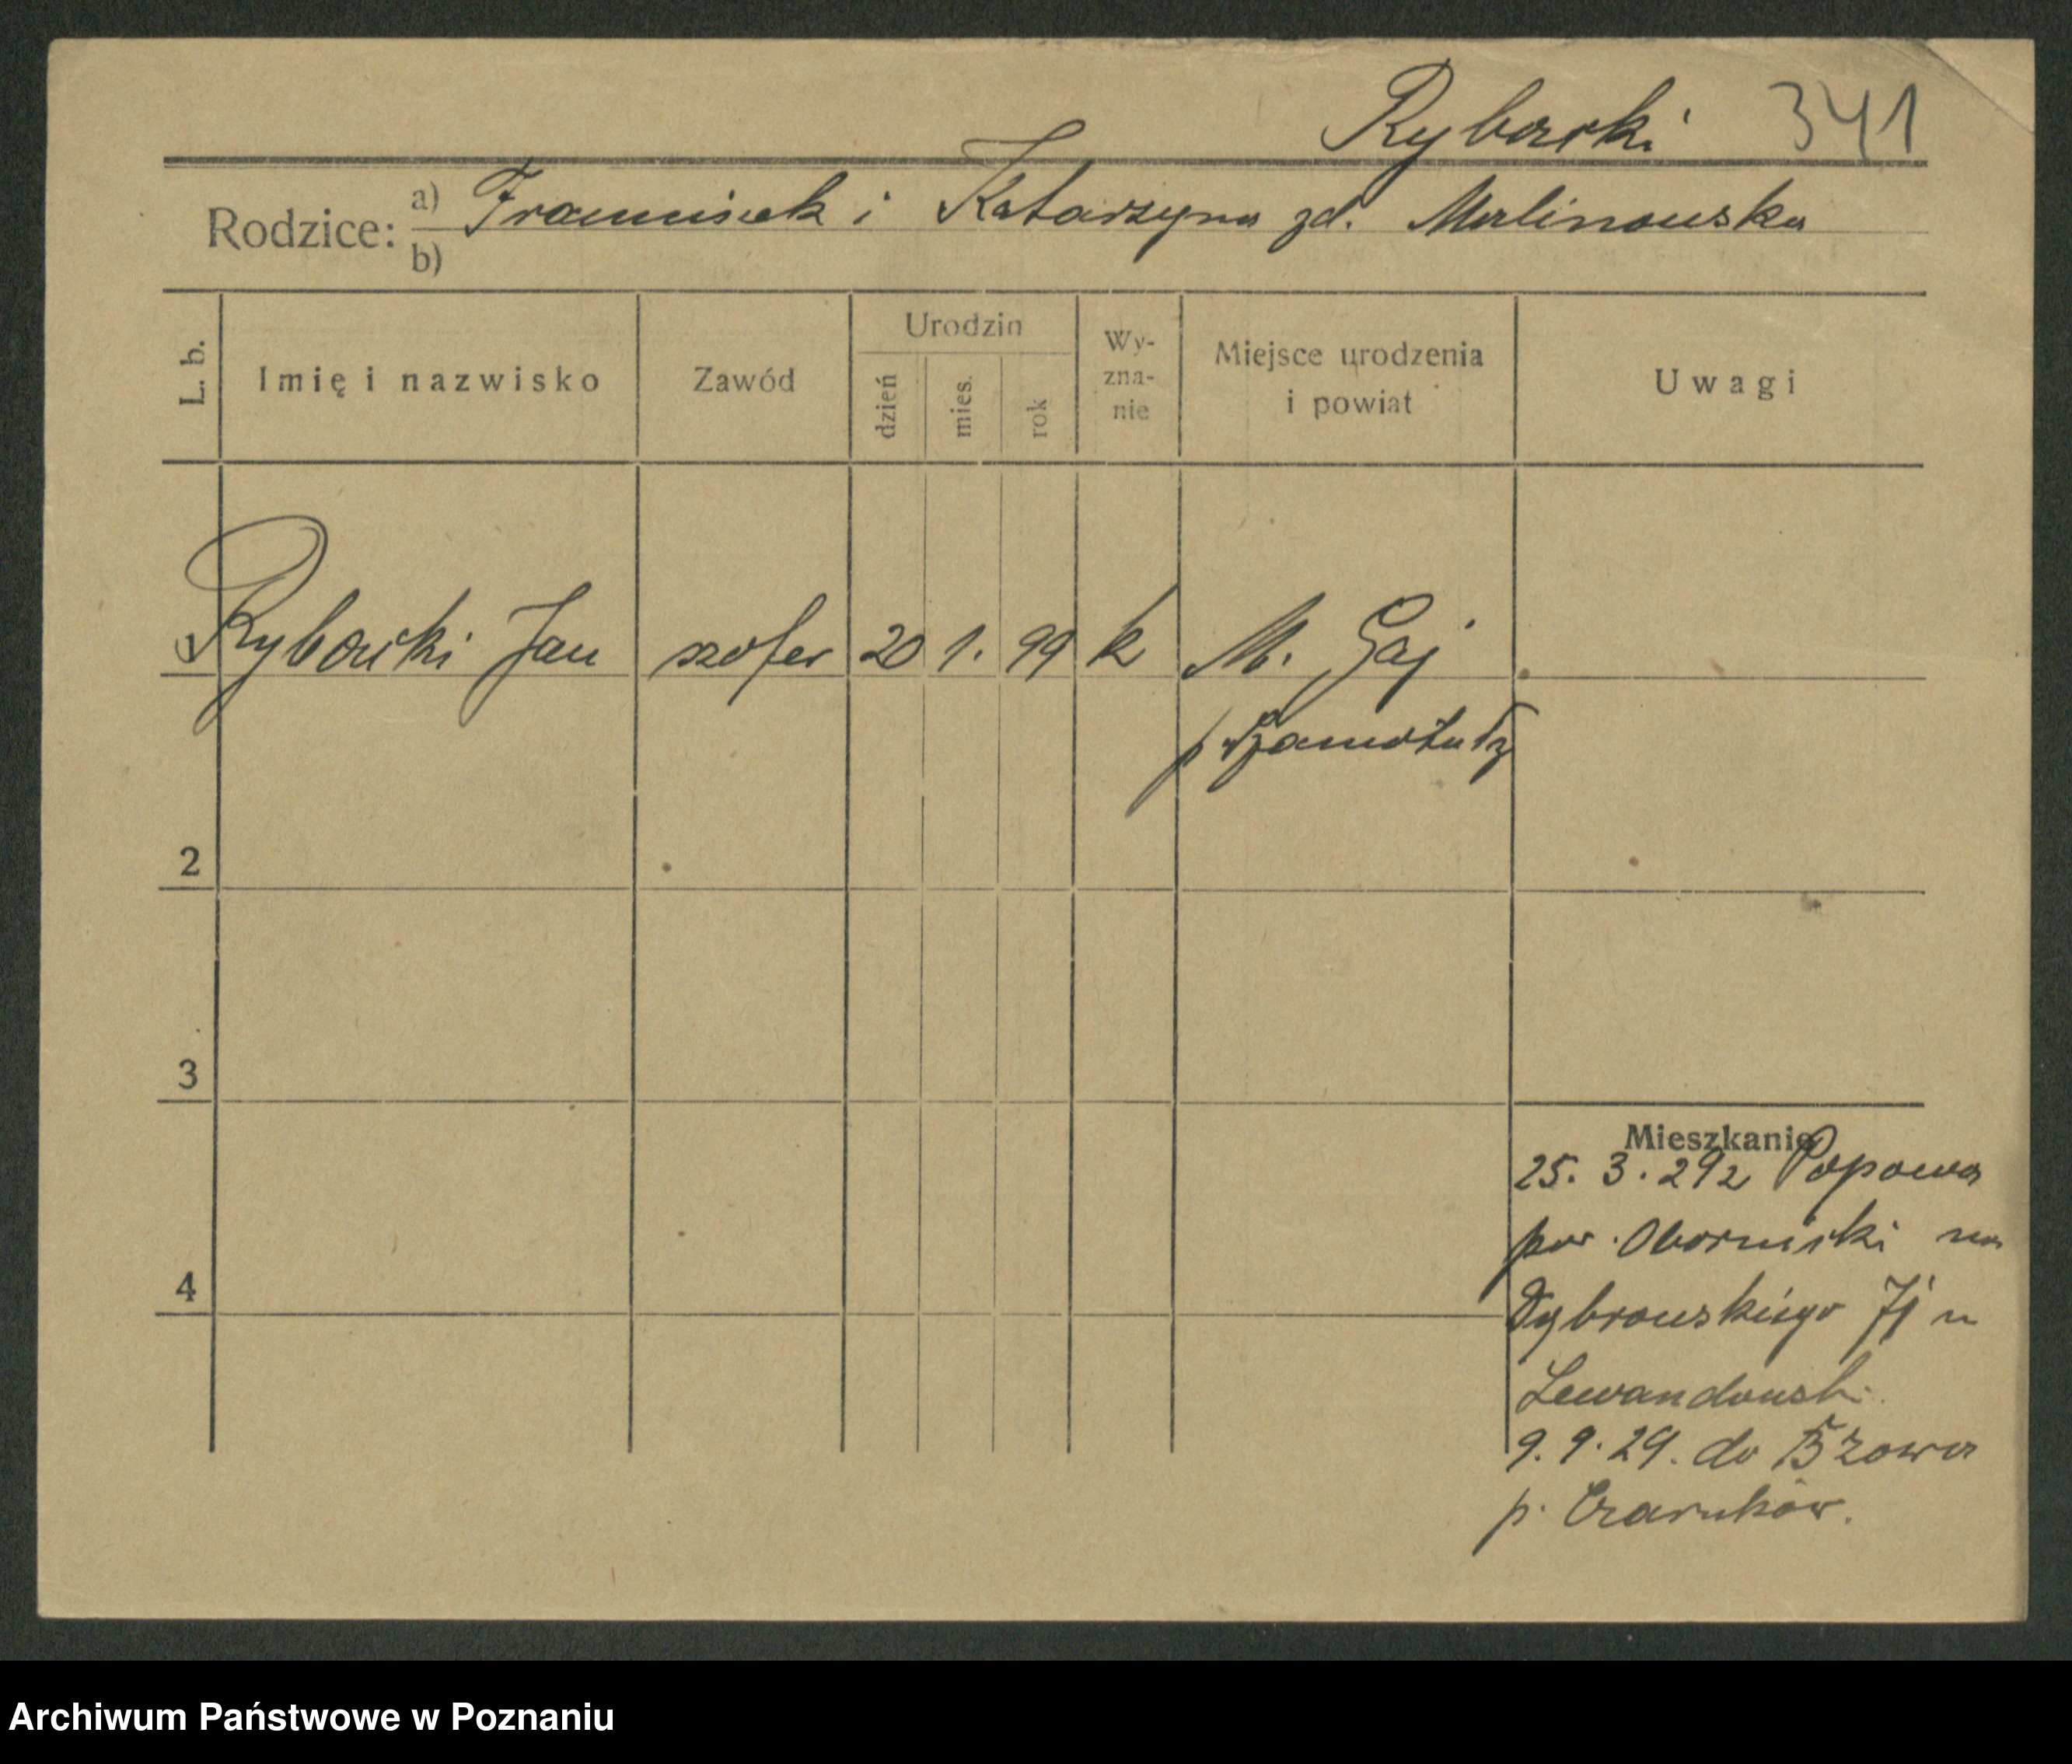 Rybarki 341
Rodzice: a) Franciszek i Katarzyna zd. Malinowska
b)
L. b. Imię i nazwisko Zawód Urodzin dzień mies. rok Wy-zna-nie Miejsce urodzenia i powiat Uwagi
1 Rybacki Jan szofer 20 1. 99 k M. Gaj
p Szamotuły
2
3
4
Mieszkanie
25. 3. 29 z Popowa
pow. Obornicki na
Dąbrowskiego 71 u
Lewandowsk.
9. 9. 29. do Bzowa
p. Czarnków.
Archiwum Państwowe w Poznaniu